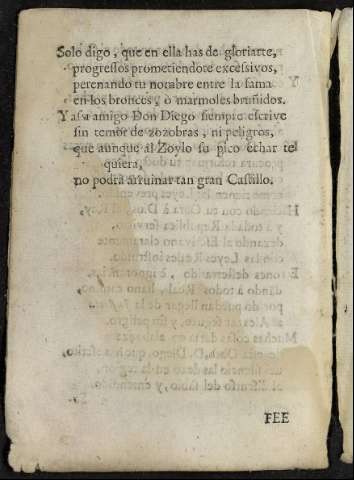 Solo digo, que en ella has de gloriarte,
progressos prometiendote excessivos,
perenando tu nombre entre la fama
en los bronces, ò marmoles bruñidos.
Y assi amigo Don Diego siempre escrive
sin temor de zozobras, ni peligros,
que aunque al Zoylo su pico echar tel
quiera,
no podrà arruinar tan gran Castillo.
FEE